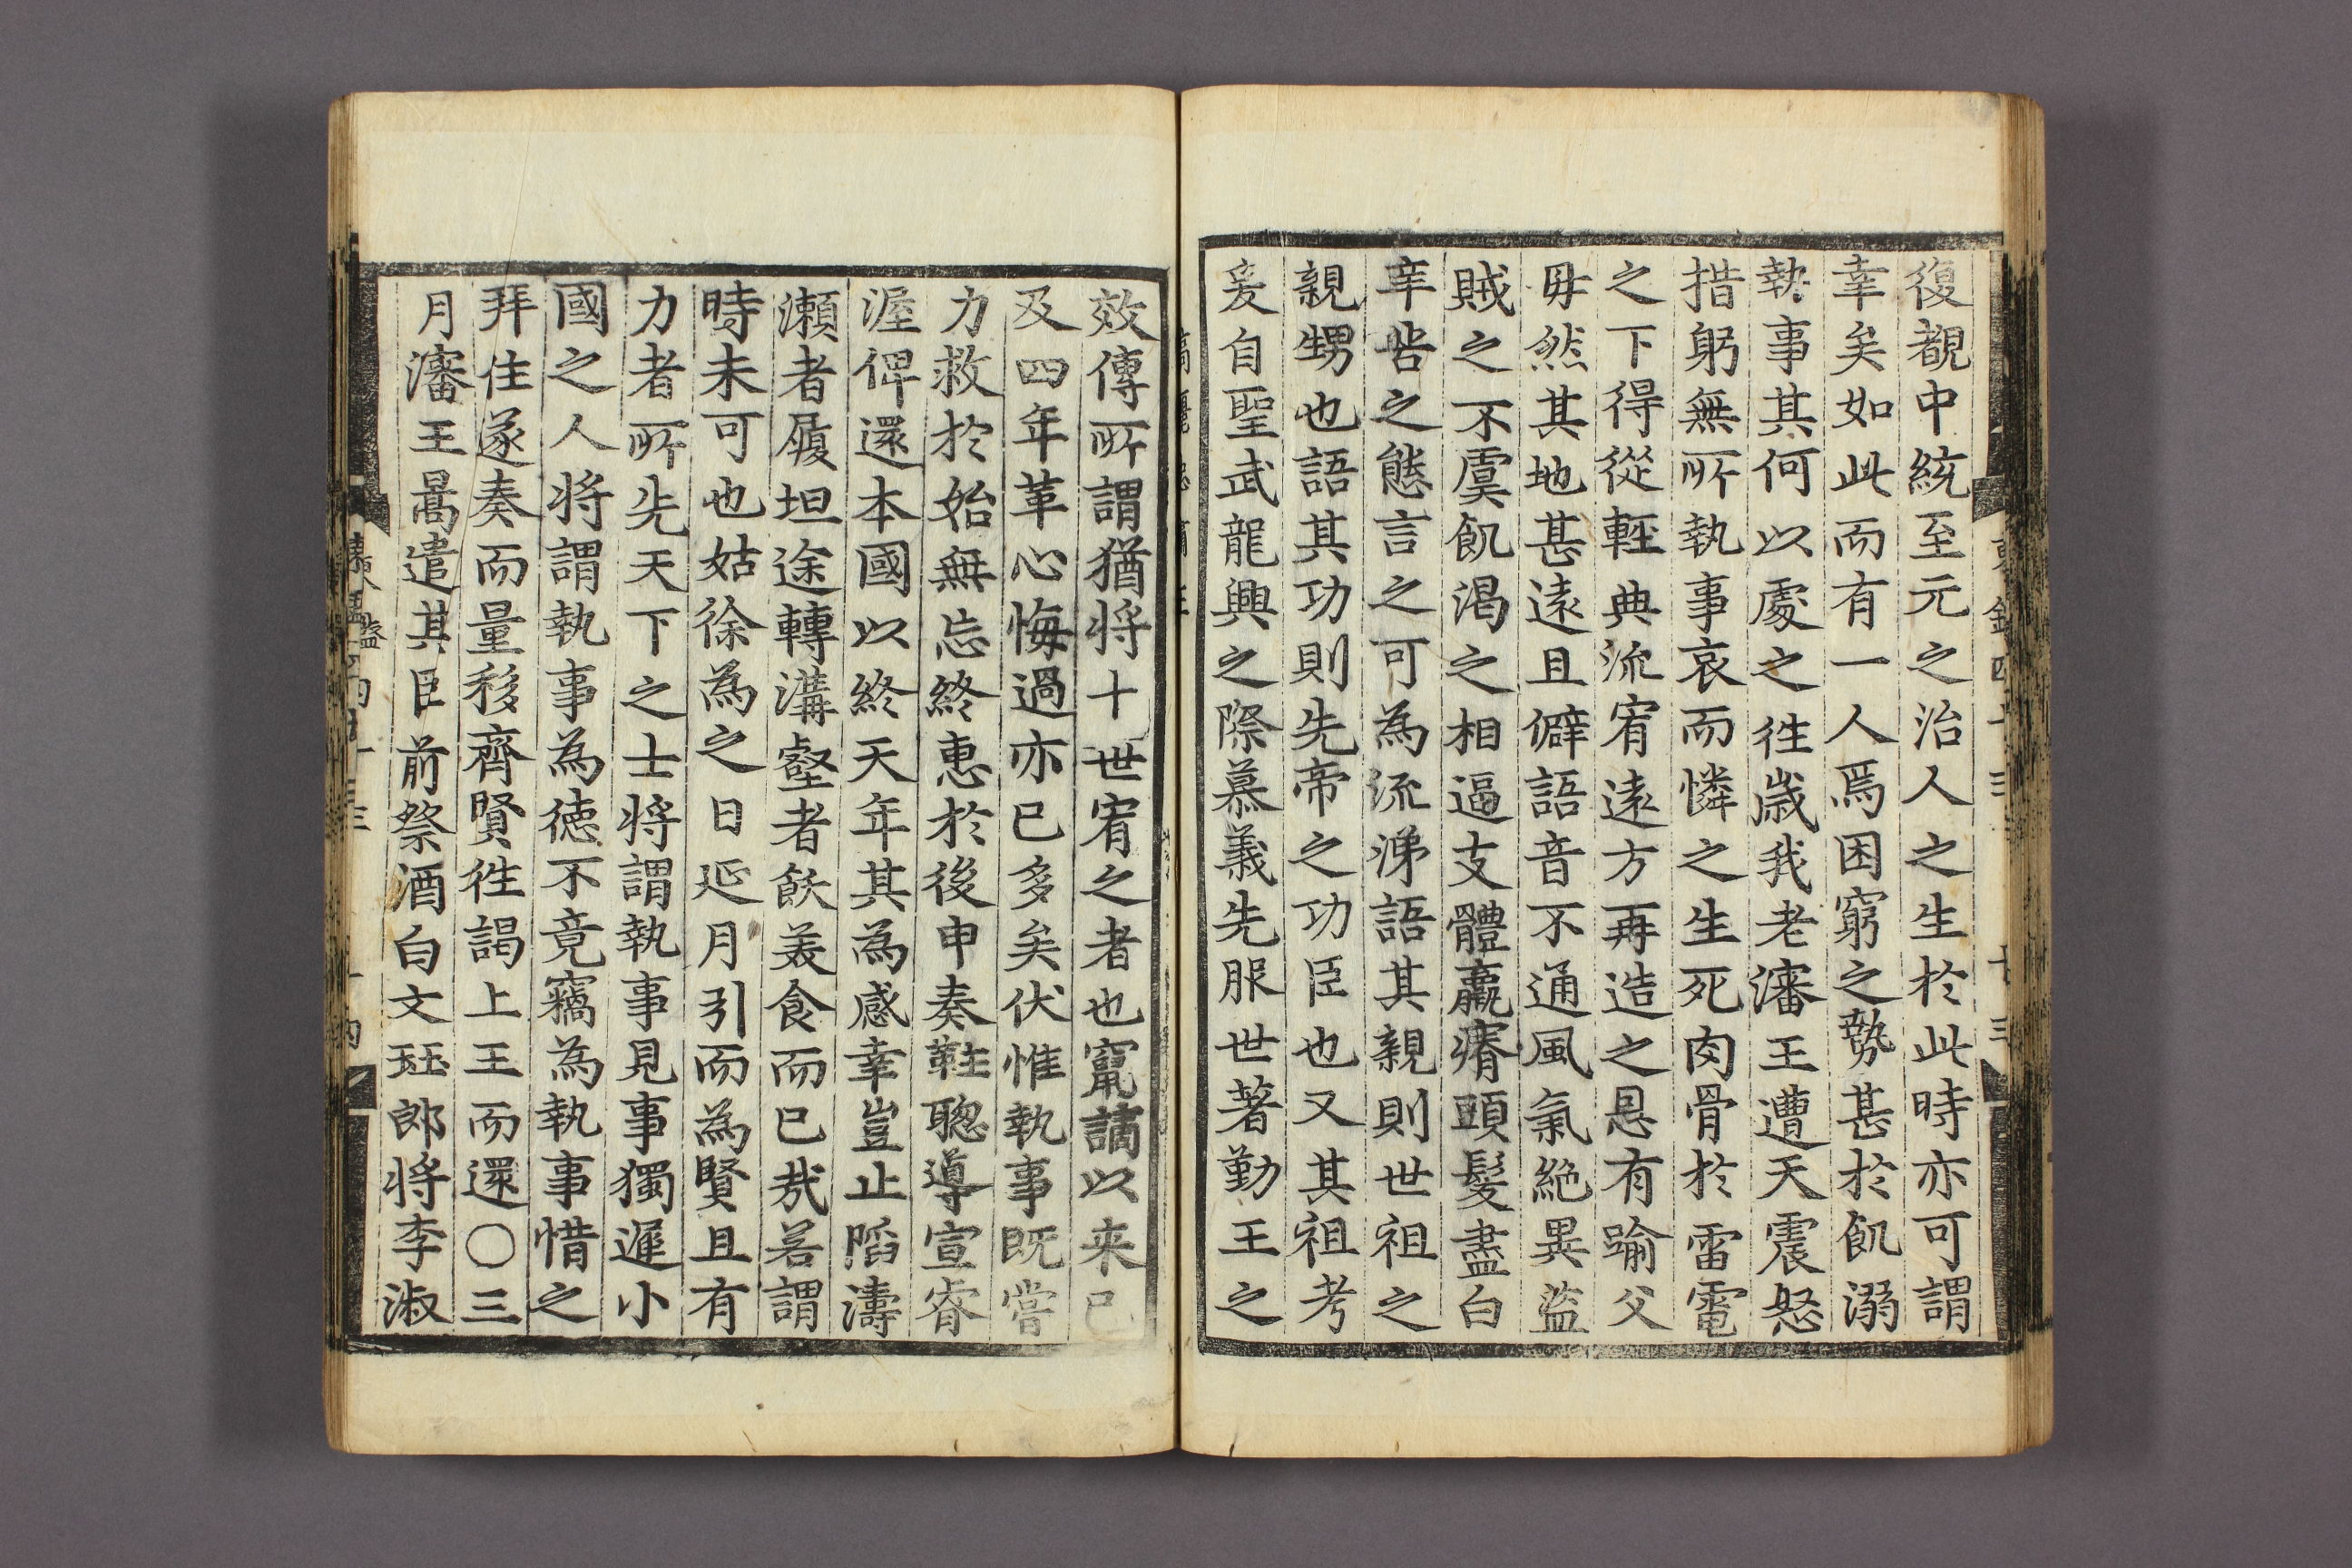 復覩中統至元之治人之生於此時亦可謂
幸矣如此而有一人焉困窮之勢甚於飢溺
執事其何以處之往歲我老瀋王遭天震怒
措躬無所執事哀而憐之生死肉骨於雷電
之下得從輕典流宥遠方再造之恩有踰父
母然其地甚遠且僻語音不通風氣絶異盜
賊之不虞飢渴之相逼支體羸瘠頭髮盡白
辛苦之態言之可為流涕語其親則世祖之
親甥也語其功則先帝之功臣也又其祖考
爰自聖武龍興之際慕義先服世著勤王之
效傳所謂猶將十世宥之者也竄謫以来已
及四年革心悔過亦已多矣伏惟執事既嘗
力救於始無忘終惠於後申奏黈聰導宣睿
渥俾還本國以終天年其為感幸豈止陷濤
瀬者履坦途轉溝壑者飫美食而已㢤若謂
時未可也姑徐為之日延月引而為賢且有
力者所先天下之士將謂執事見事獨遲小
國之人將謂執事為徳不竟竊為執事惜之
拜住遂奏而量移齊賢往謁上王而還〇三
月瀋王暠遣其臣前祭酒白文珏郎將李淑